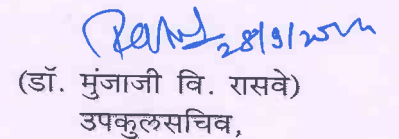 28/9/20
(डॉ. मुंजाजी वि. रासवे)
उपकुलसचिव,